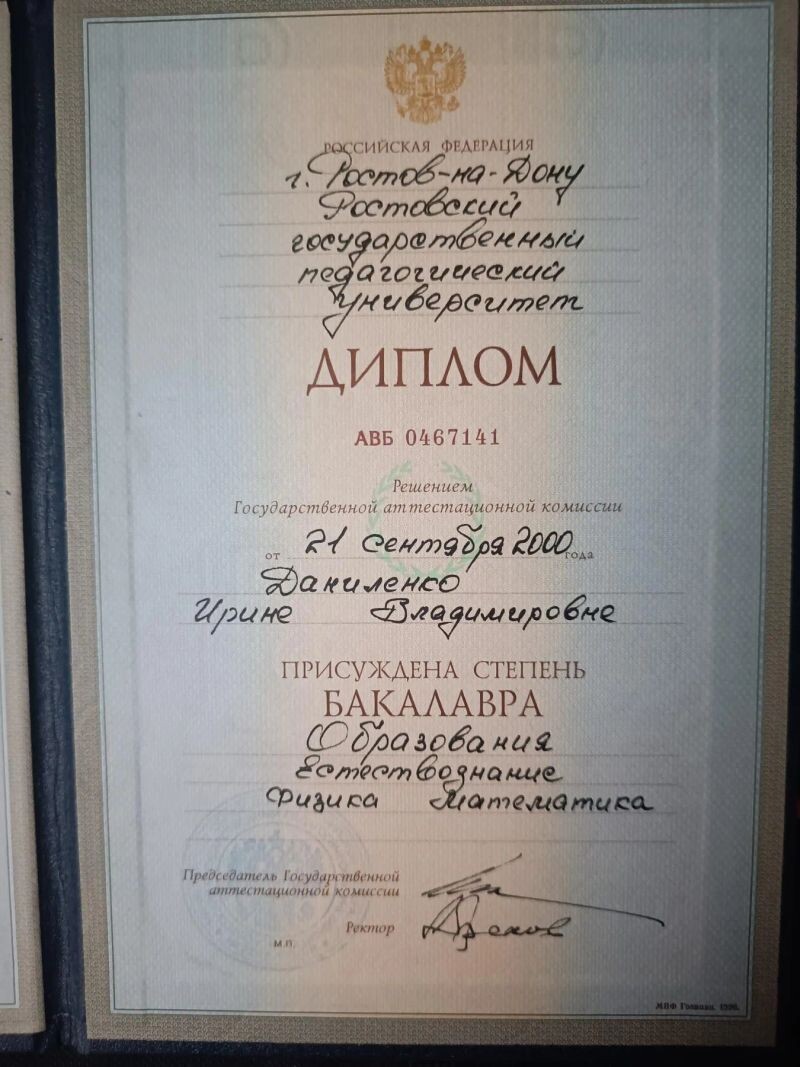 РОССИЙСКАЯ ФЕДЕРАЦИЯ
г. Ростов-на-Дону
Ростовский
государственный
педагогический
университет
ДИПЛОМ
АВБ 0467141
Решением
Государственной аттестационной комиссии
от 21 сентября 2000 года
Даниленко
Ирине Владимировне
ПРИСУЖДЕНА СТЕПЕНЬ
БАКАЛАВРА
Образования
Естествознание
Физика Математика
Председатель Государственной
аттестационной комиссии
Ректор
М.П.
МПФ Гознака. 1996.